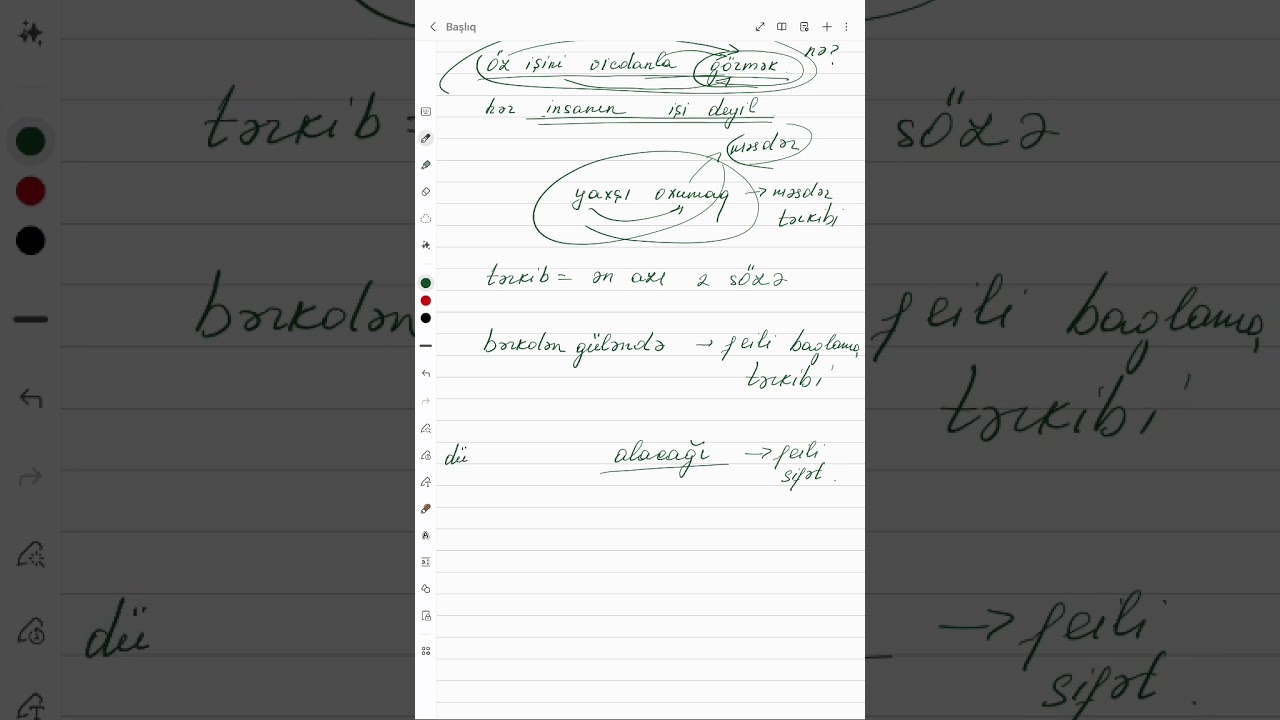 Başlıq
öz işini vicdanla görmək nə?
hər insanın işi deyil
məsdər
yaxşı oxumaq → məsdər
tərkibi
tərkib = ən azı 2 sözə
bərkdən güləndə → feili bağlama
tərkibi
dü alacağı → feili
sifət.